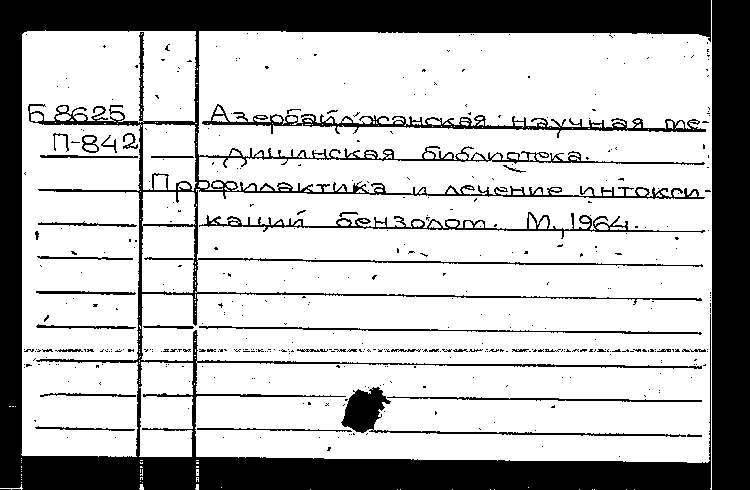 Б 8625 Азербайджанская научная ме-
П-842 дицинская библиотека.
Профилактика и лечение интокси-
каций бензолом. М., 1964.